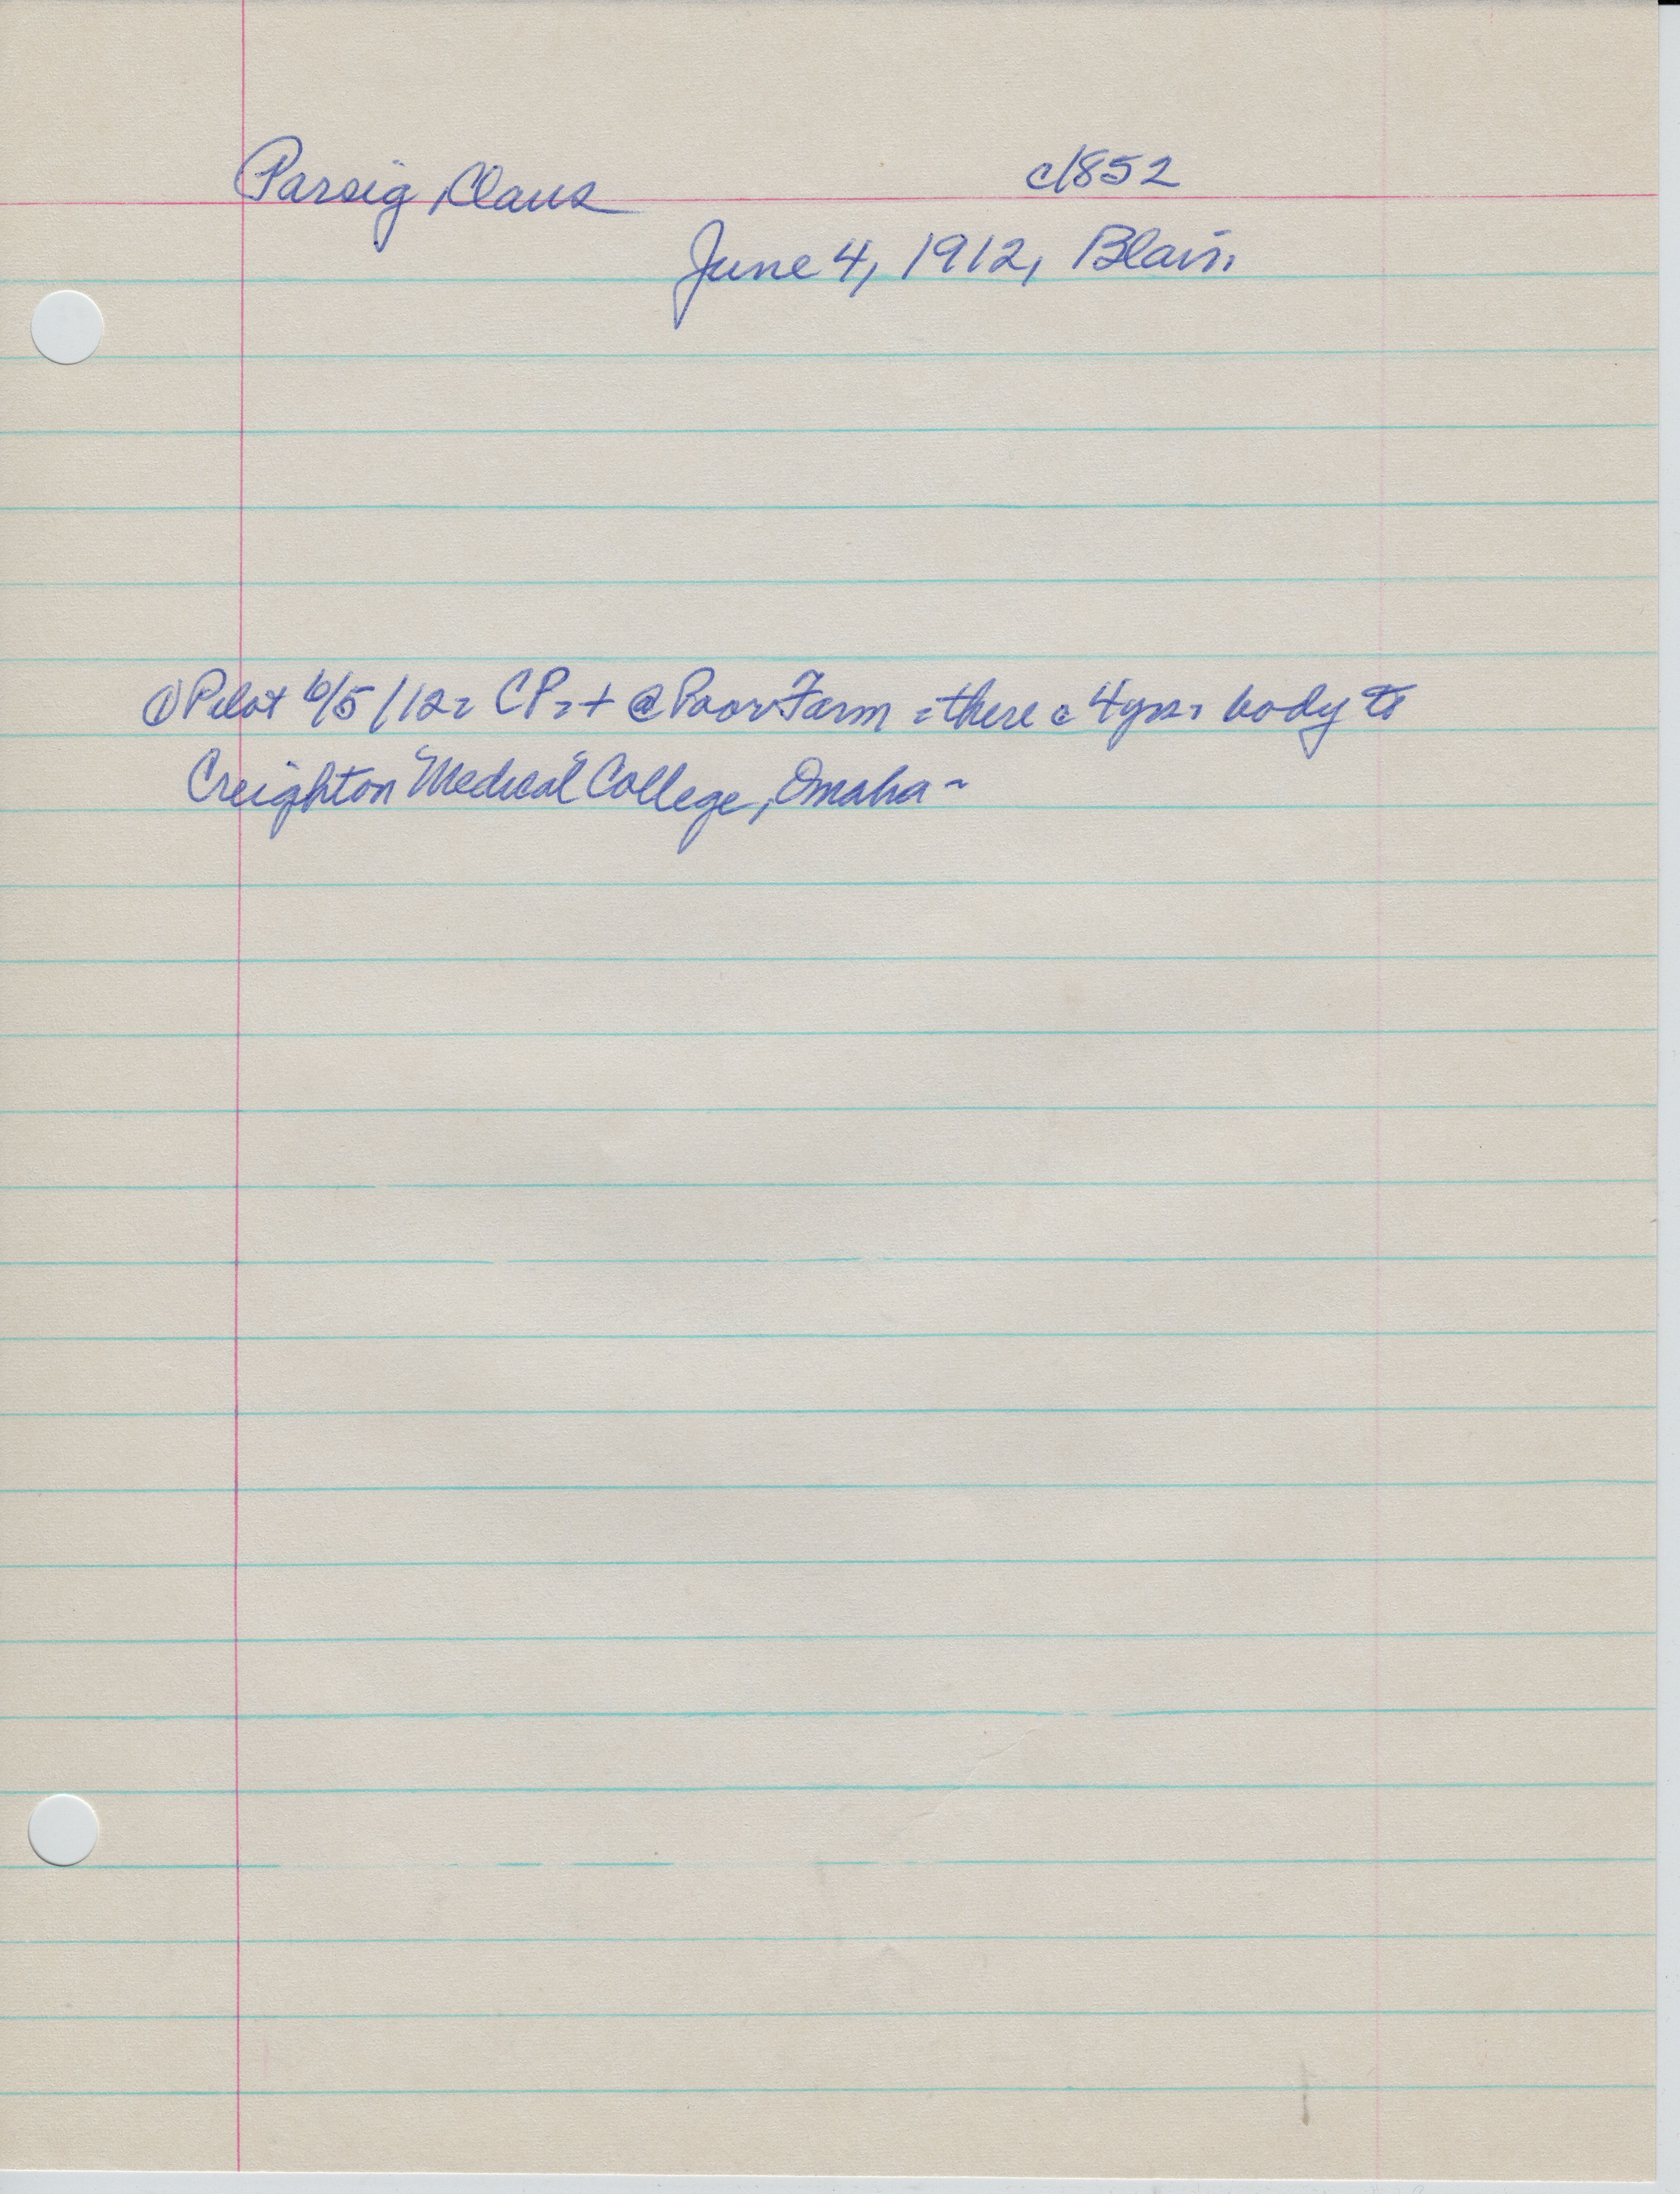 Parsig, Claus c1852
June 4, 1912, Blair.
① Pilot 6/5/12: CP. + @ Poor Farm - there c 4 yrs. body to
Creighton "Medical" College, Omaha -